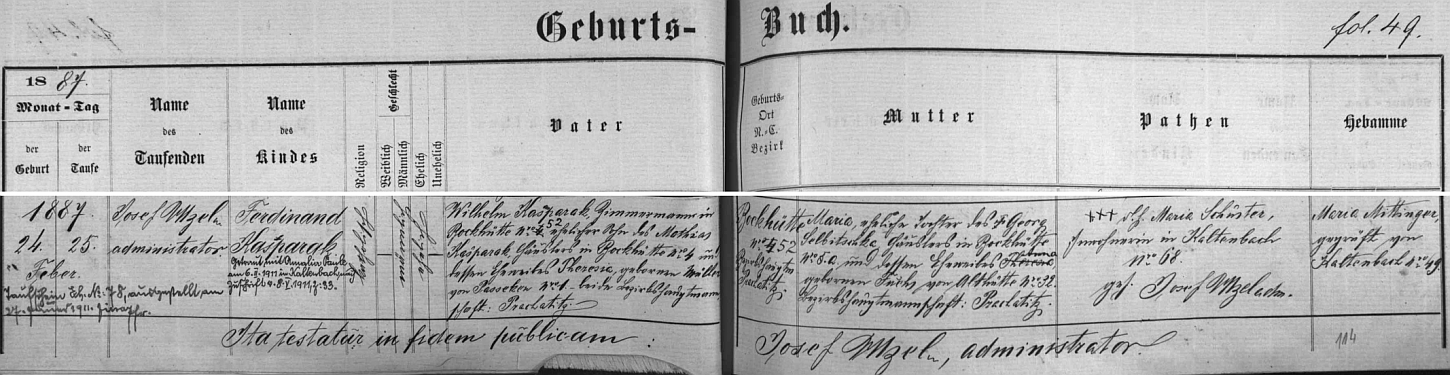 Geburts- Buch.
fol. 49.
18 87.
Monat-Tag
der Geburt
der Taufe
Name des Taufenden
Name des Kindes
Religion
Geschlecht
Weiblich
Männlich
Ehelich
Unehelich
Vater
Geburts-Ort N.-C. Bezirk
Mutter
Pathen
Hebamme
1887.
24. 25.
Feber.
Taufschein
Josef Utzel
administrator.
Ferdinand
Kašparak
Getraut mit Amalia
am 6.II.1911 in Kaltenbach
Wilhelm Kašparak, Zimmermann in
Bockhütte N. 52, ehelicher Sohn des Mathias
Kašparak, Häuslers in Bockhütte N. 4 und
dessen Eheweibes Theresia, gebornen Müller
von Passeken N. 1. beide Bezirkshauptmann-
schaft: Prachatitz.
Bockhütte
N. 52
Prachatitz.
Maria, eheliche Tochter des † Georg
Häuslers in Bockhütte
N. 8.a. und dessen Eheweibes
gebornen Fuchs, von Althütte N. 32.
Bezirkshauptmannschaft: Prachatitz.
+++ Maria Schuster,
Inwohnerin in Kaltenbach
N. 68.
Josef Utzel adm.
Maria Mittinger,
geprüft von
Kaltenbach N. 49.
Ita testatur in fidem publicam :
Josef Utzel, administrator.
114